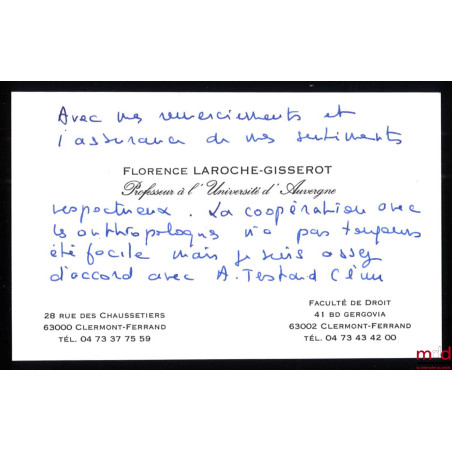 Avec mes remerciements et
l'assurance de mes sentiments
FLORENCE LAROCHE-GISSEROT
Professeur à l'Université d'Auvergne
respectueux. La coopération avec
les anthropologues n'a pas toujours
été facile mais je suis assez
d'accord avec A. Testard
28 RUE DES CHAUSSETIERS
63000 CLERMONT-FERRAND
TÉL. 04 73 37 75 59
FACULTÉ DE DROIT
41 BD GERGOVIA
63002 CLERMONT-FERRAND
TÉL. 04 73 43 42 00